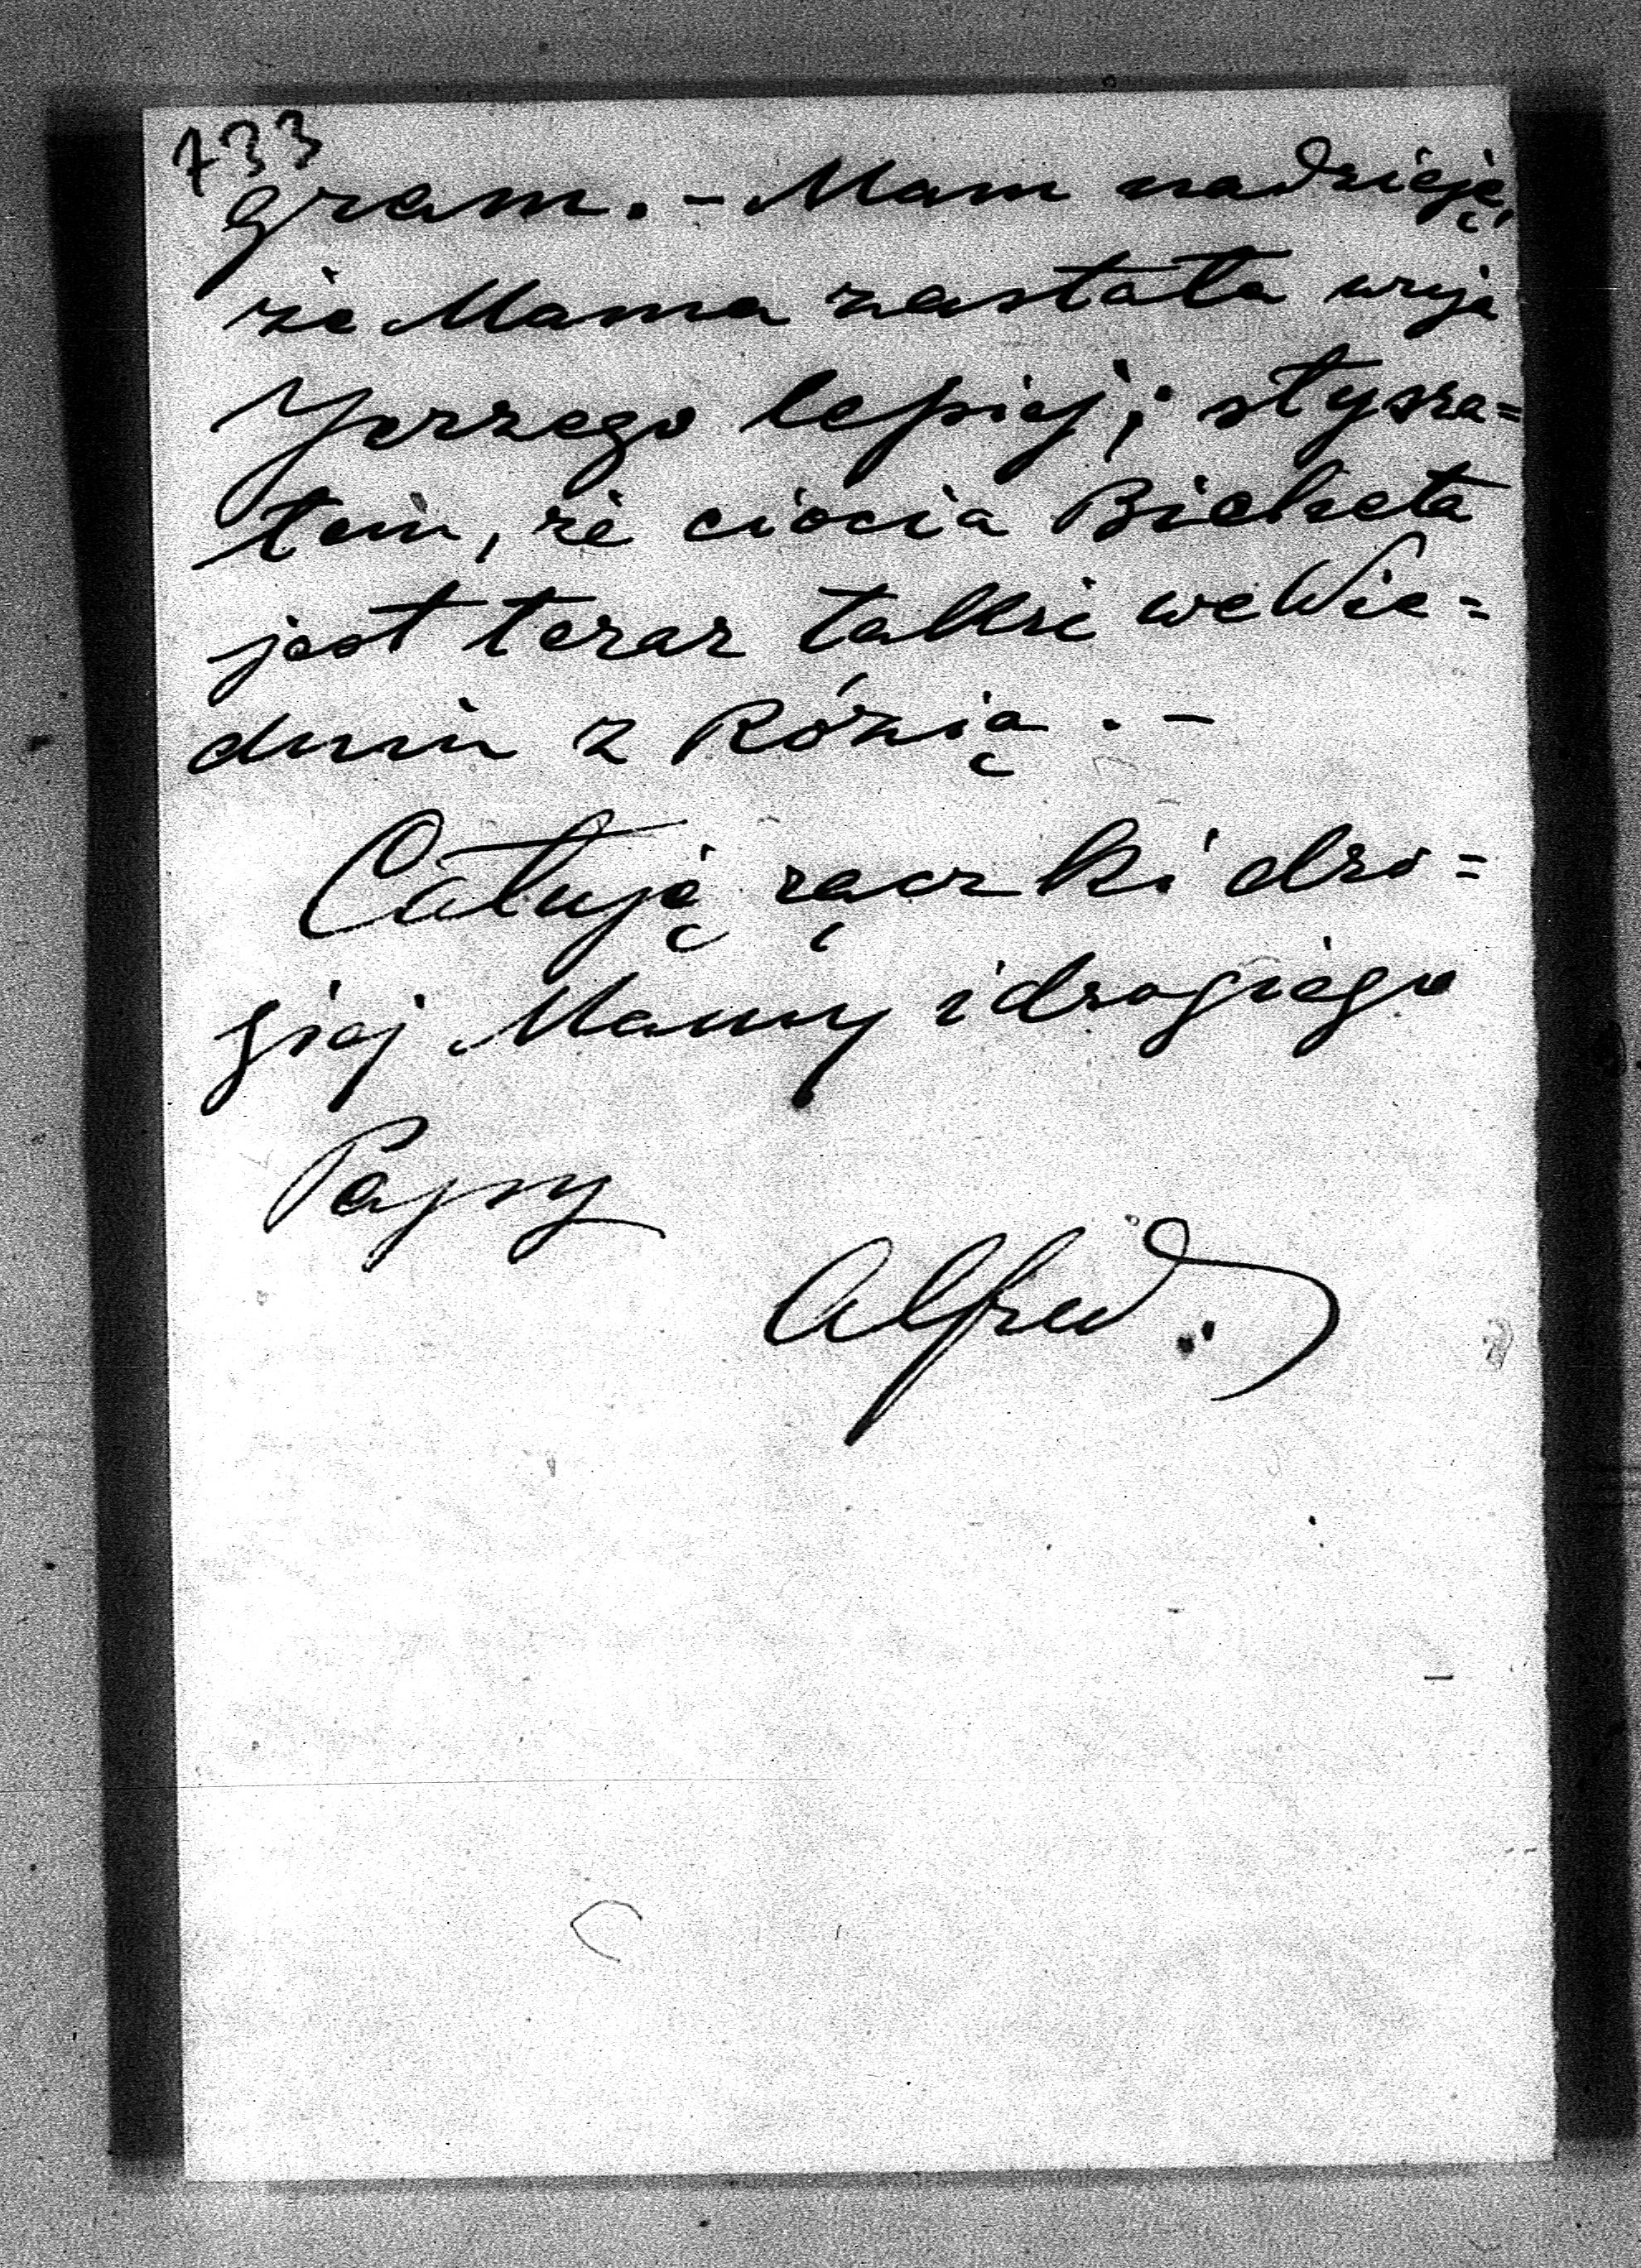 733
gram. - Mam nadzieję,
że Mama zastała wuja
Jerzego lepiej; słysza=
łem, że ciocia Bicheta
jest teraz także we Wie=
dniu z Rózią. -
Całuję rączki dro=
giej Mamy i drogiego
Papy
Alfred.